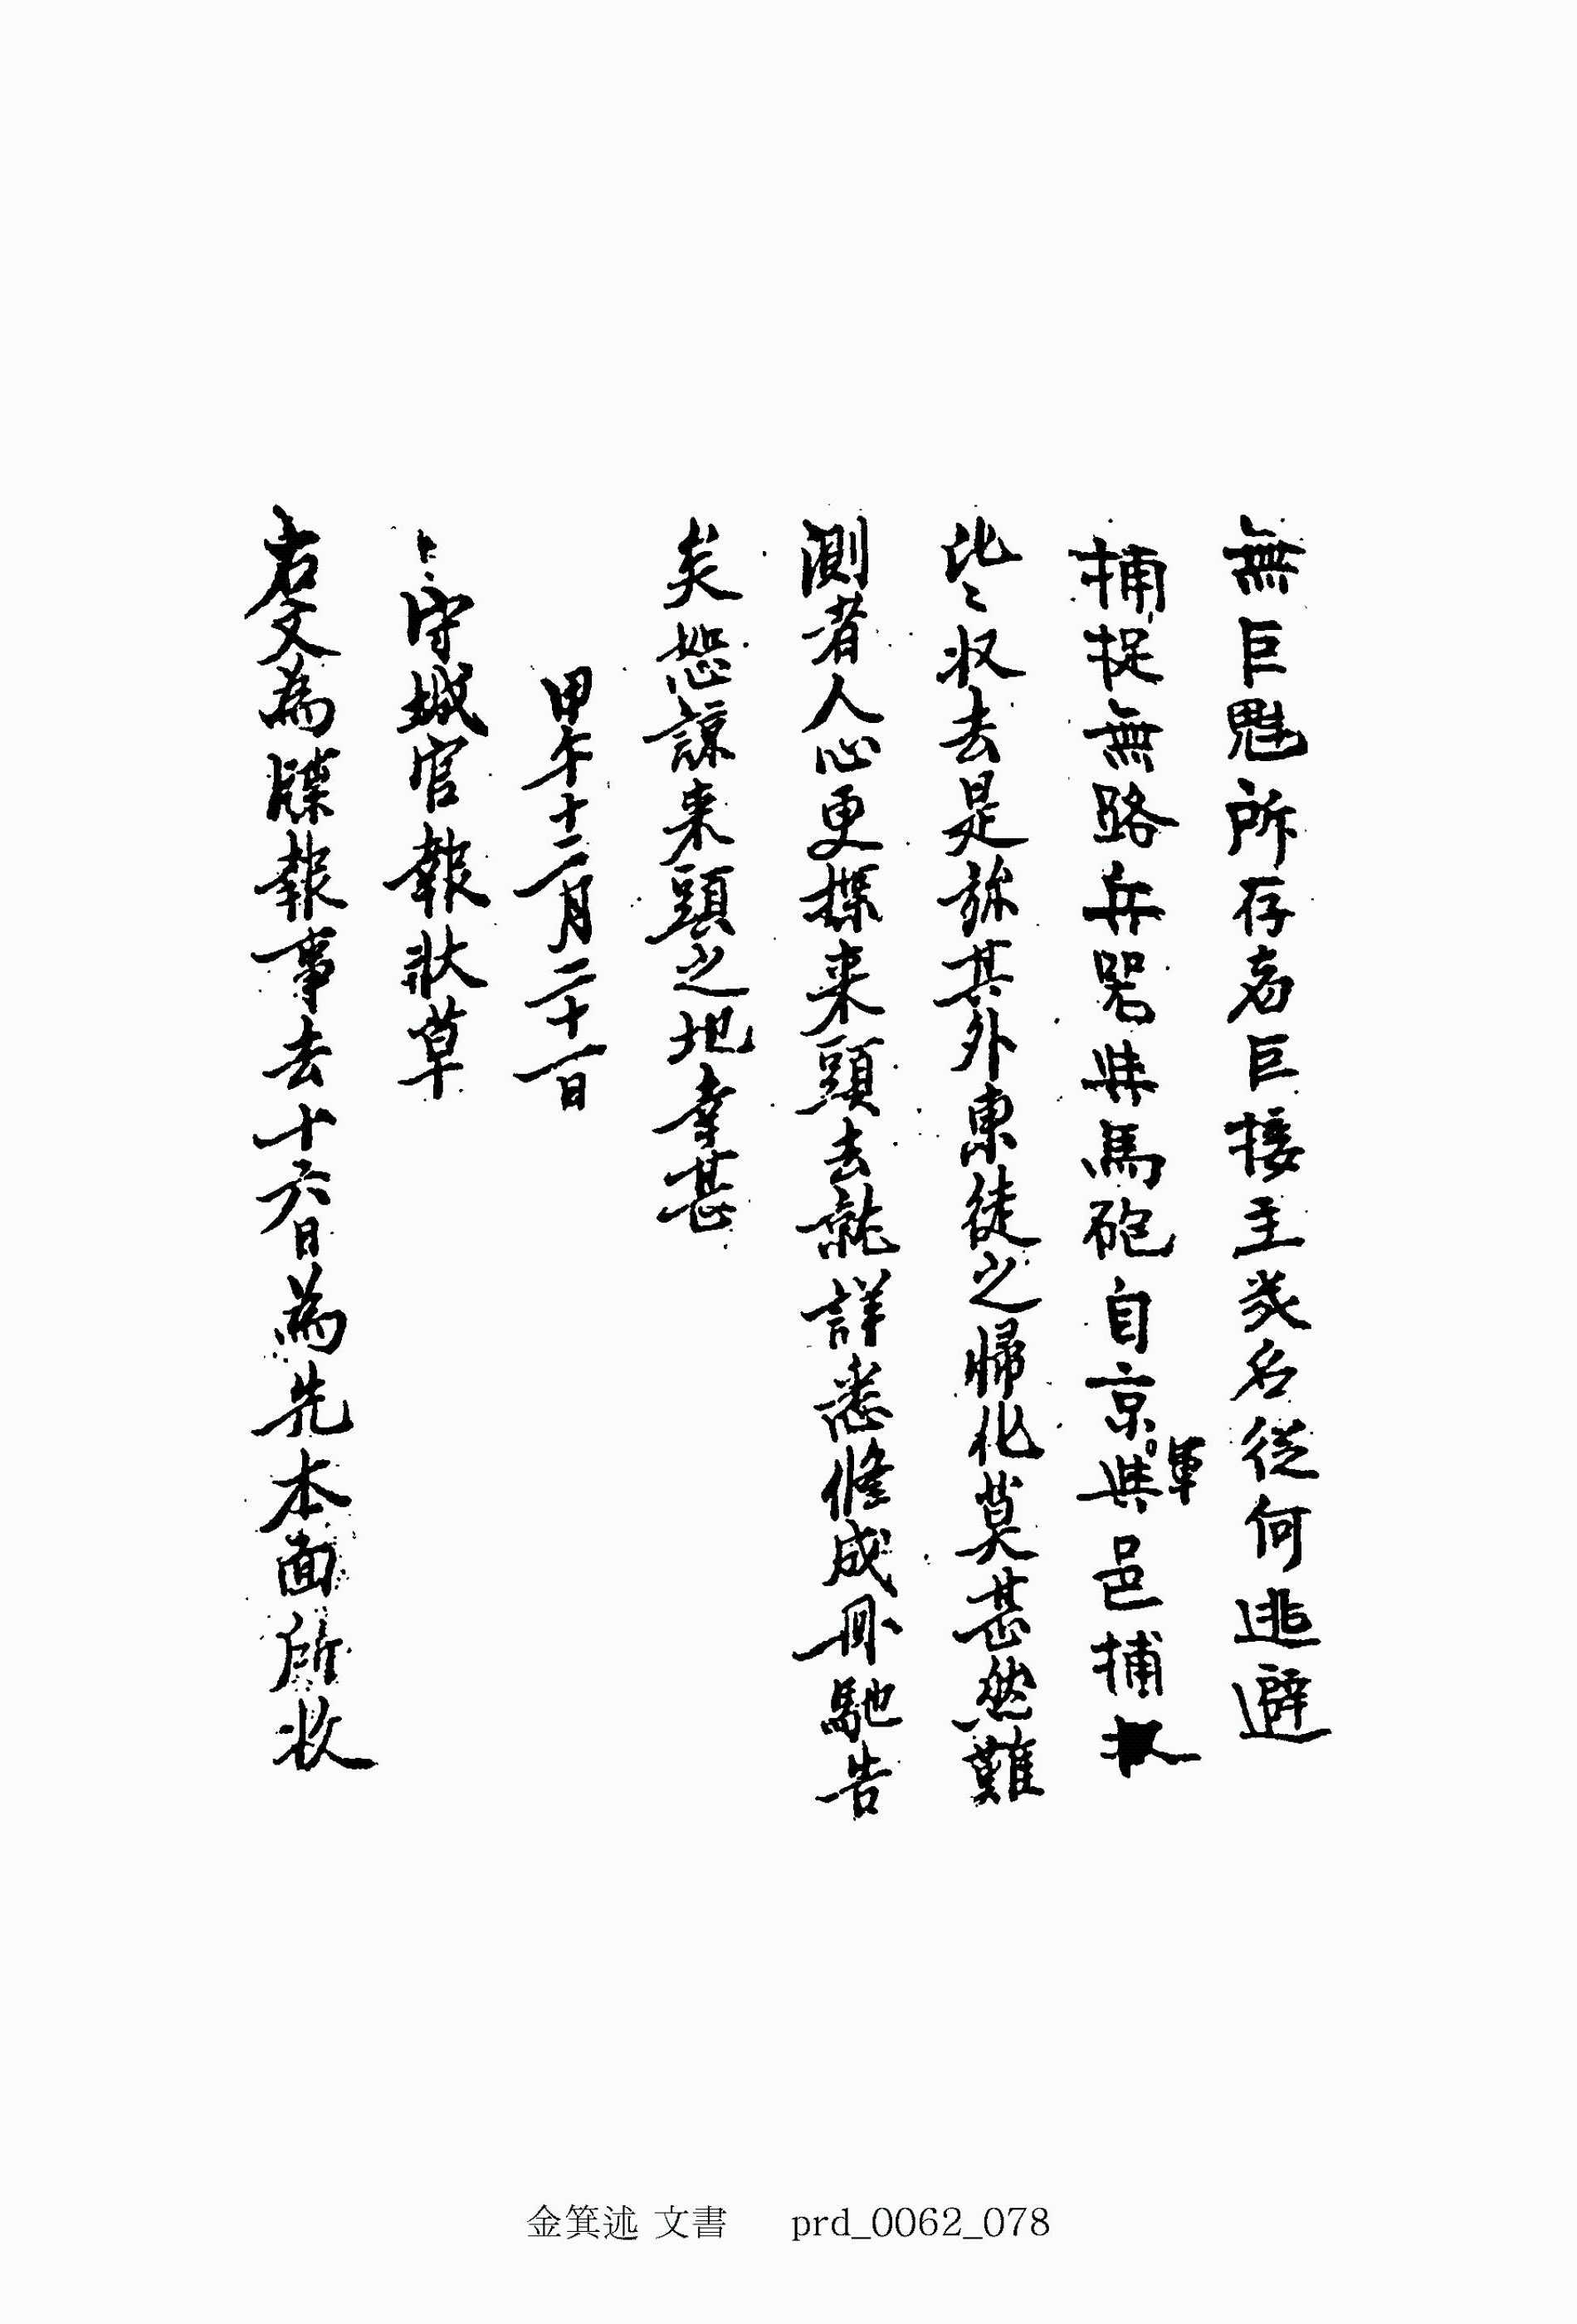 無巨魁所存者巨接主幾名從何逃避
捕捉無路兵器與馬砲自京軍與邑捕
此〻收去是弥其外東徒之歸化莫甚然難
測者人心更探来頭去就詳悉修成冊馳告
矣恕諒来頭之地幸甚
甲午十二月二十一日
守城官報狀草
右文為牒報事去十六日為先本面所收
金箕述 文書 prd_0062_078